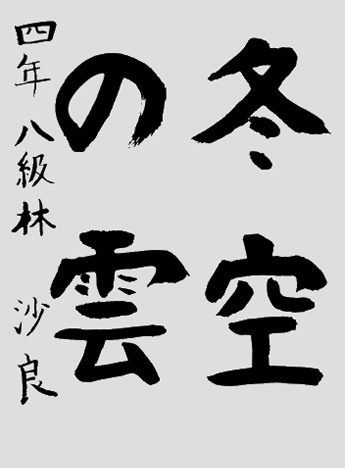 冬空
の雲
四年 八級 林 沙良